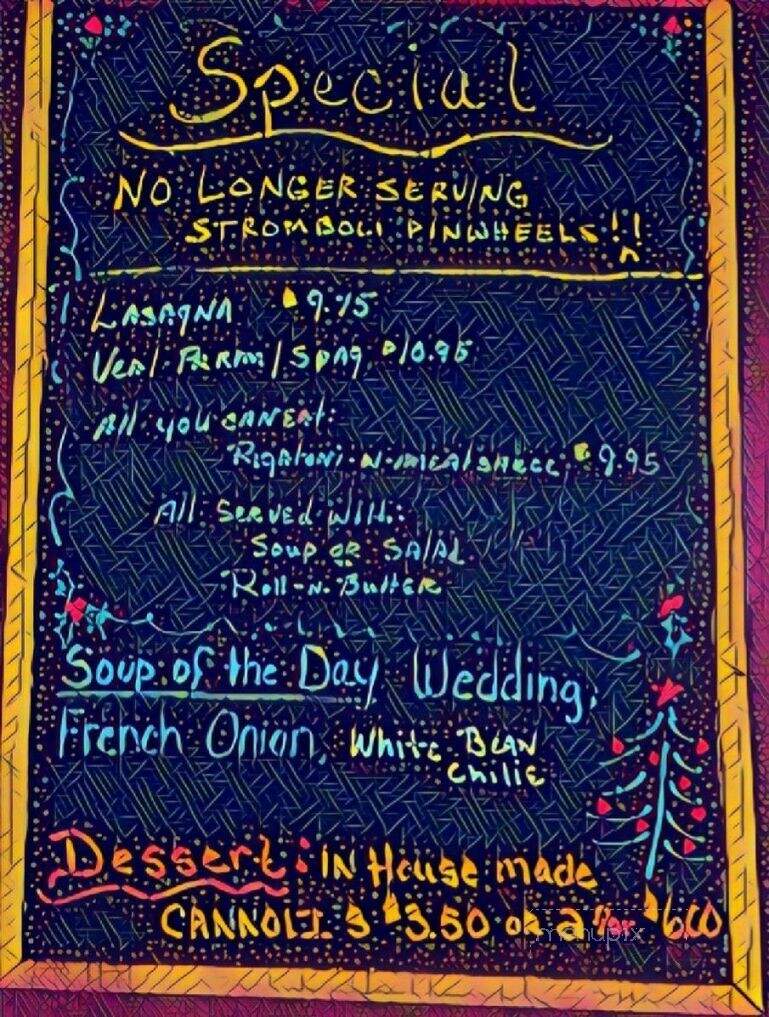 Special
NO LONGER SERVING
STROMBOLI PINWHEELS!!
LASAGNA $9.95
Veal PARM/SPAG $10.95
All you CAN EAT:
RIGATONI-N-MEATSAUCE $9.95
All SERVED WITH:
SOUP OR SALAD
Roll-N-BUTTER
Soup of the Day Wedding,
French Onion, White BEAN
Chilie
Dessert: IN House made
CANNOLI'S $3.50 or 2 for $6.00
menupix